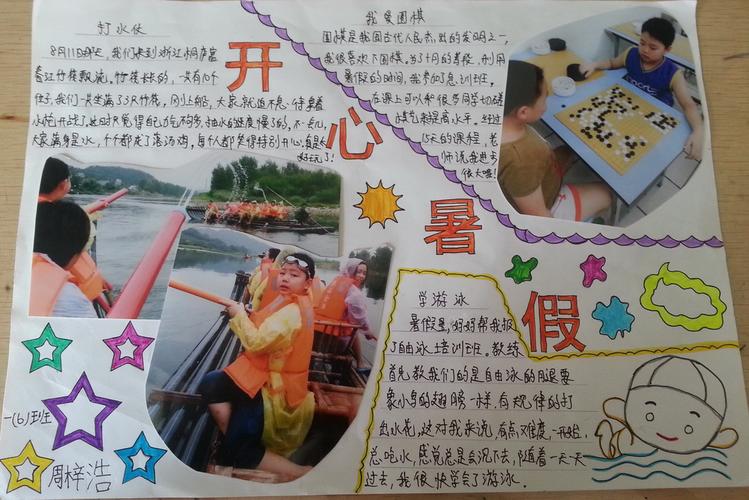 打水仗
8月11日那天，我们来到浙江桐庐富
春江竹筏漂流，竹筏长长的，一只有10个
位子，我们一共坐满了3只竹筏，刚上船，大家就迫不及待拿着
水枪开战了，这时我觉得自己力气不够，抽水的速度慢了的，不一会儿，
大家满身是水，个个都成了落汤鸡，每个人都觉得特别开心，真是太
好玩了！
我爱围棋
围棋是我国古代人民杰出的发明之一，
我很喜欢下围棋，为了十月的考段，利用
暑假的时间，我参加了培训班，
在课上可以和很多同学切磋
技艺来提高水平，经过
15天的课程，老
师说我进步
很大噢！
开
心
暑
假
学游泳
暑假里，妈妈帮我报
了自由泳培训班。教练
首先教我们的是自由泳的腿要
象小鸟的翅膀一样，有规律的打
出水花，这对我来说，有点难度，一开始，
总吃水，感觉总是会沉下去，随着一天一天
过去，我很快学会了游泳．
一(6)班
周梓浩